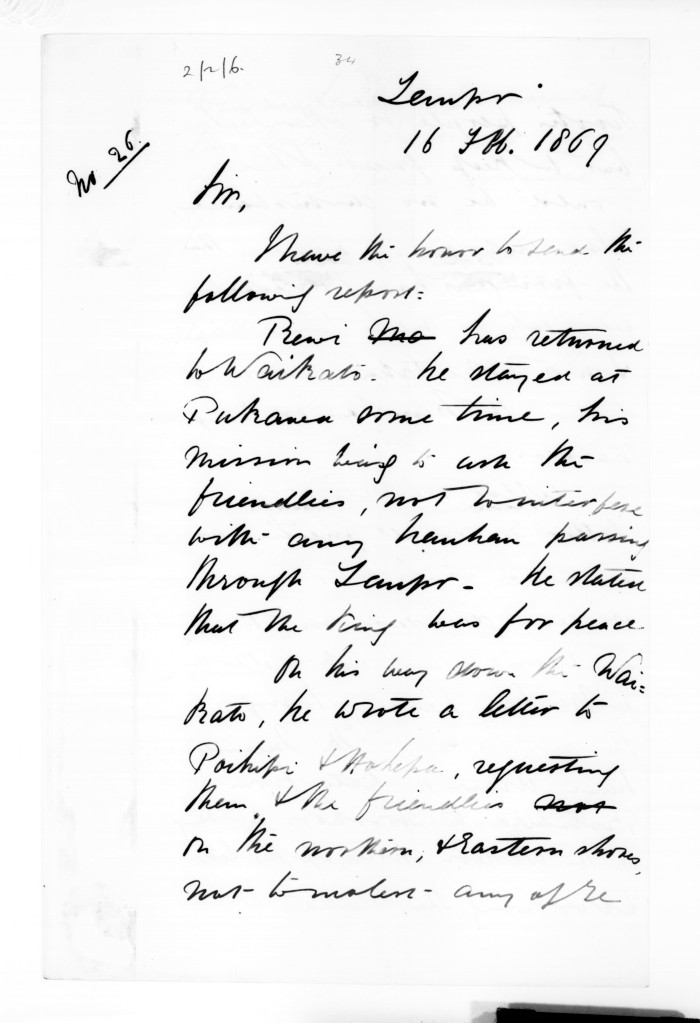 2/2/6.
34
Taupo
16 Feb. 1869
No. 26.
Sir,
I have the honor to send the
following report:
Rewi has returned
to Waikato. he stayed at
Pukawa some time, his
mission being to ask the
friendlies, not to interfere
with any hauhau passing
through Taupo - he stated
that the King was for peace
On his way down the Wai=
kato, he wrote a letter to
Poihipi & Hohepa, requesting
them, & the friendlies not
on the northern, & Eastern shores,
not to molest any of Te